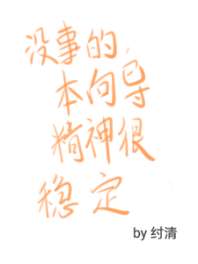 没事的,
本向导
精神很
稳定
by 纣清